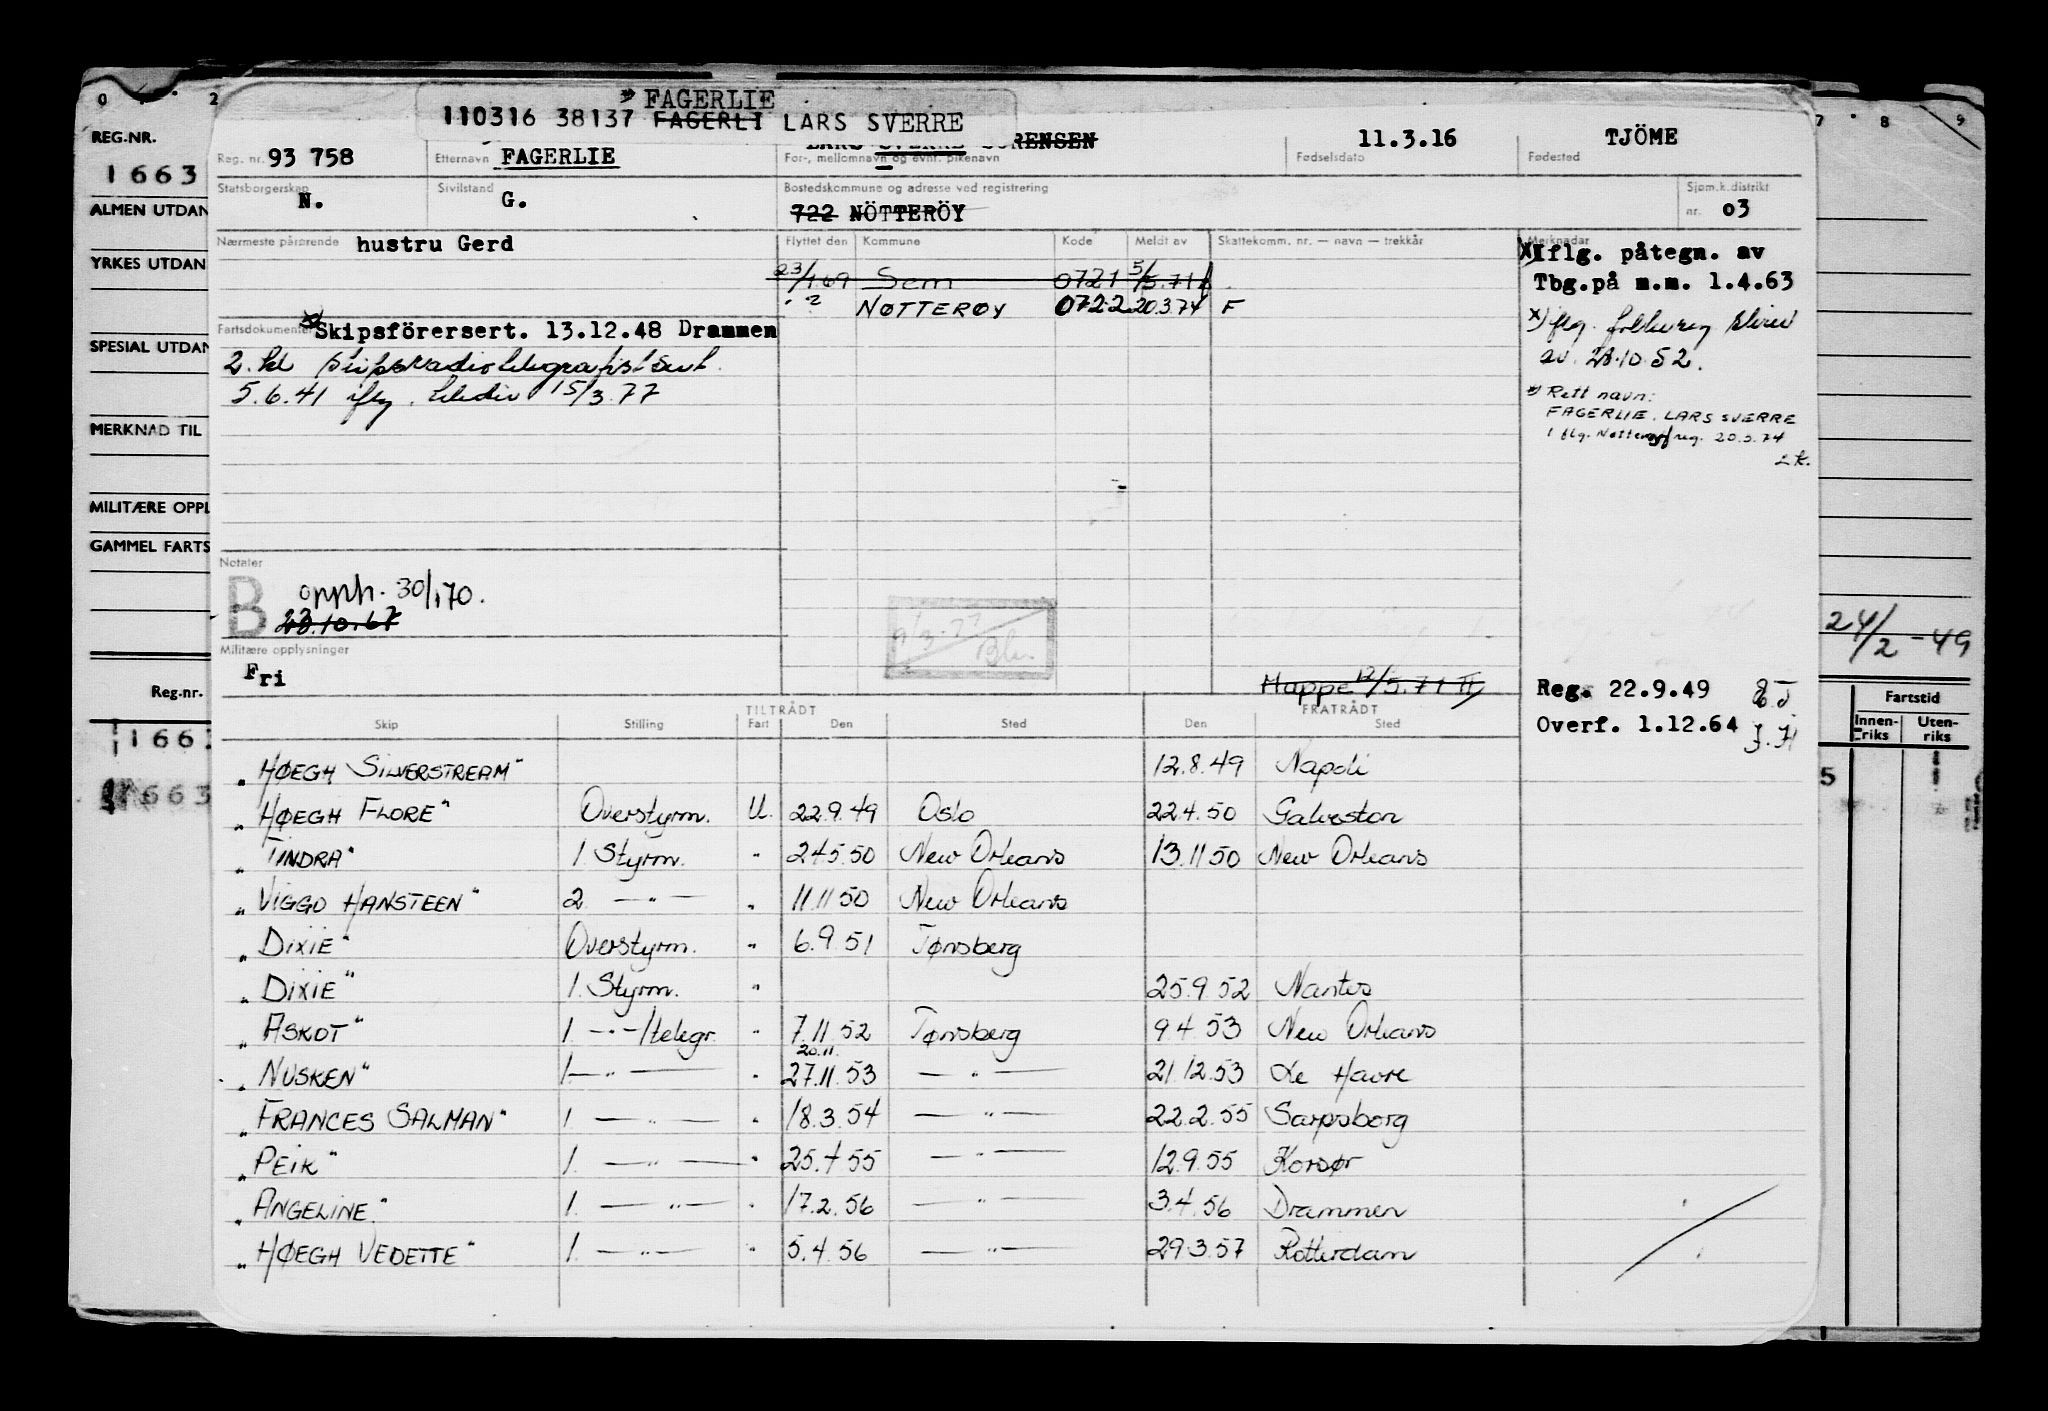 REG.NR.
1663
ALMEN UTDAN
YRKES UTDAN
SPESIAL UTDAN
MERKNAD TIL
MILITÆRE OPPL
GAMMEL FARTS
Reg.nr.
* FAGERLIE
110316 38137 FAGERLI LARS SVERRE
RENSEN
Reg. nr. 93 758
Etternavn FAGERLIE
For-, mellomnavn og evnt. pikenavn
11.3.16
Fødselsdato
TJÖME
Fødested
Statsborgerskap N.
Sivilstand G.
Bostedskommune og adresse ved registrering
722 NÖTTERÖY
Sjøm.k.distrikt
nr. 03
Nærmeste pårørende hustru Gerd
Flyttet den Kommune Kode Meldt av Skattekomm. nr. — navn — trekkår Merknader
23/1.69 Sem 0721 5/5.71
" ? NØTTERØY 0722 20.3.74 F
x) Iflg. påtegn. av
Tbg.på m.m. 1.4.63
x) iflg.
av. 28.10.52.
*) Rett navn:
FAGERLIE, LARS SVERRE
iflg. Nøtterøy f/reg. 20.3.74
Fartsdokumenter x) Skipsförersert. 13.12.48 Drammen
2. kl skipsradiotelegrafistsert.
5.6.41 iflg. teledir 15/3.77
Notater
B opph. 30/1 70.
23.10.67
9/3-77
Militære opplysninger
Fri
Mappe 12/5.71
Reg. 22.9.49
Overf. 1.12.64
24/2-49
Fartstid
Innen-riks Uten-riks
TILTRÅDT FRATRÅDT
Skip Stilling Fart Den Sted Den Sted
"HØEGH SILVERSTREAM" 12.8.49 Napoli
"HØEGH FLORE" Overstyrm. U. 22.9.49 Oslo 22.4.50 Galveston
"TINDRA" 1. Styrm. " 24.5.50 New Orleans 13.11 50 New Orleans
"VIGGO HANSTEEN" 2. —"— " 11.11 50 New Orleans
"DIXIE" Overstyrm. " 6.9.51 Tønsberg
"DIXIE" 1. Styrm. " 25.9.52 Nantes
"ASKOT" 1. —"—/telegr. " 7.11.52 Tønsberg 9.4.53 New Orleans
20.11.
"NUSKEN" 1. —"— " 27.11.53 —"— 21.12.53 Le Havre
"FRANCES SALMAN" 1. —"— " 18.3.54 —"— 22.2.55 Sarpsborg
"PEIK" 1. —"— " 25.4.55 —"— 12.9.55 Korsør
"ANGELINE." 1. —"— " 17.2.56 —"— 3.4.56 Drammen
"HØEGH VEDETTE" 1. —"— " 5.4.56 —"— 29.3.57 Rotterdam